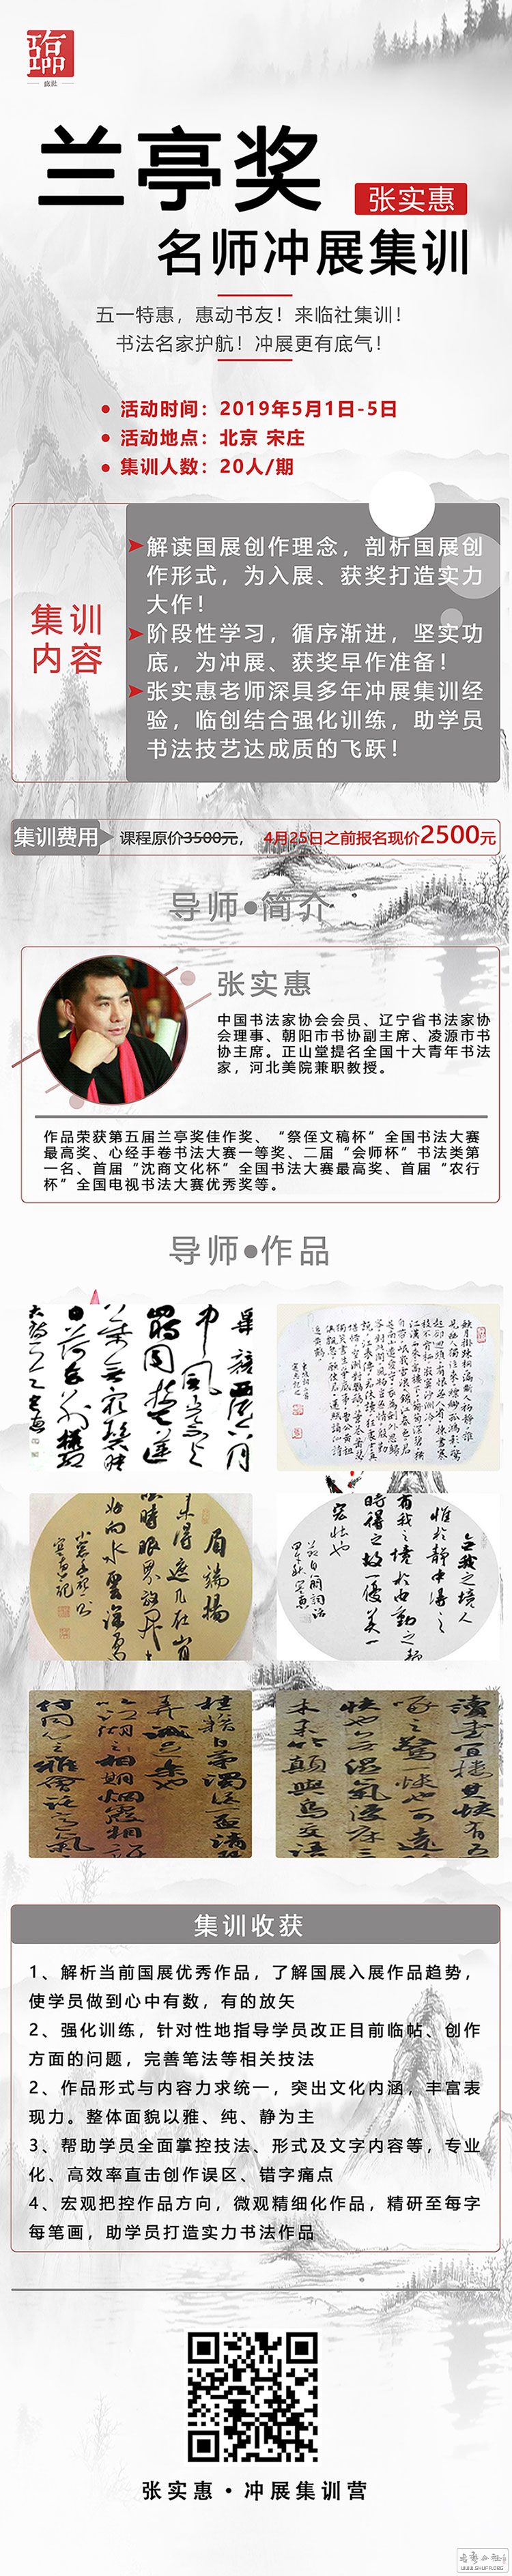 臨
临社
兰亭奖
张实惠
名师冲展集训
五一特惠，惠动书友！来临社集训！
书法名家护航！冲展更有底气！
活动时间：2019年5月1日-5日
活动地点：北京 宋庄
集训人数：20人/期
集训
内容
解读国展创作理念，剖析国展创
作形式，为入展、获奖打造实力
大作！
阶段性学习，循序渐进，坚实功
底，为冲展、获奖早作准备！
张实惠老师深具多年冲展集训经
验，临创结合强化训练，助学员
书法技艺达成质的飞跃！
集训费用 课程原价3500元， 4月25日之前报名现价2500元
导师●简介
张实惠
中国书法家协会会员、辽宁省书法家协
会理事、朝阳市书协副主席、凌源市书
协主席。正山堂提名全国十大青年书法
家，河北美院兼职教授。
作品荣获第五届兰亭奖佳作奖、“祭侄文稿杯”全国书法大赛
最高奖、心经手卷书法大赛一等奖、二届“会师杯”书法类第
一名、首届“沈商文化杯”全国书法大赛最高奖、首届“农行
杯”全国电视书法大赛优秀奖等。
导师●作品
集训收获
1、解析当前国展优秀作品，了解国展入展作品趋势，
使学员做到心中有数，有的放矢
2、强化训练，针对性地指导学员改正目前临帖、创作
方面的问题，完善笔法等相关技法
2、作品形式与内容力求统一，突出文化内涵，丰富表
现力。整体面貌以雅、纯、静为主
3、帮助学员全面掌控技法、形式及文字内容等，专业
化、高效率直击创作误区、错字痛点
4、宏观把控作品方向，微观精细化作品，精研至每字
每笔画，助学员打造实力书法作品
张实惠·冲展集训营
WWW.SHUFA.ORG